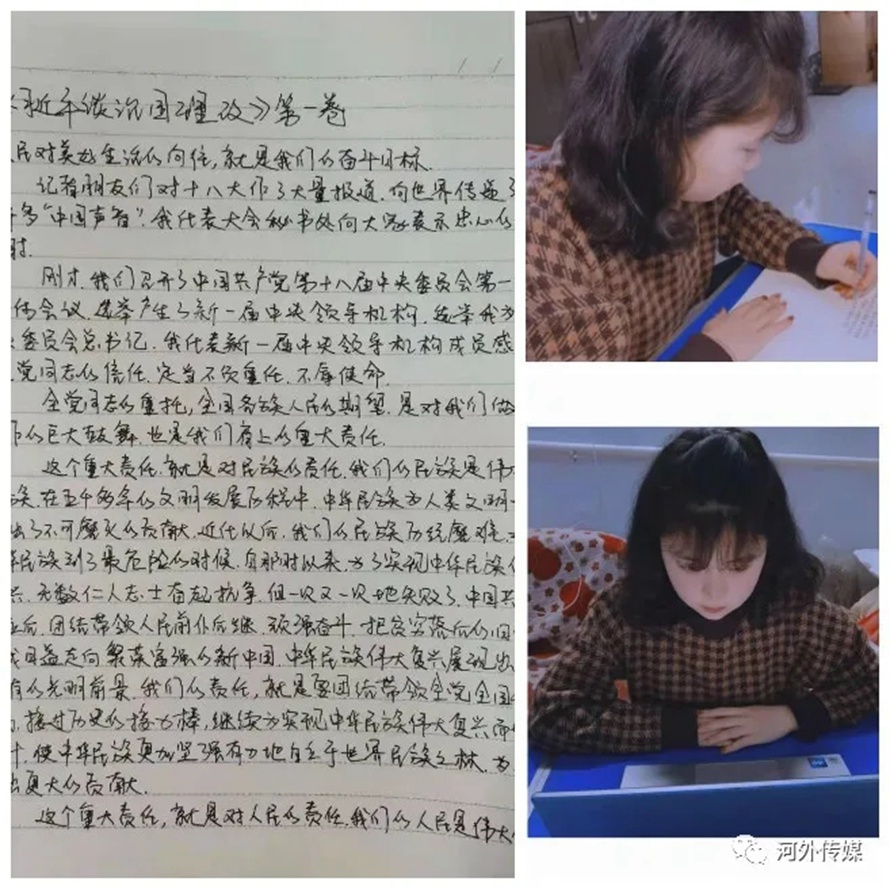 习近平谈治国理政》第一卷
民对美好生活的向往,就是我们的奋斗目标.
记者朋友们对十八大作了大量报道.向世界传递了
多“中国声音”.我代表大会秘书处向大家表示衷心的
刚才,我们召开了中国共产党第十八届中央委员会第一
体会议.选举产生了新一届中央领导机构.选举我为
委员会总书记.我代表新一届中央领导机构成员感
党同志的信任.定当不负重任.不辱使命.
全党同志的重托,全国各族人民的期望.是对我们做
作的巨大鼓舞.也是我们肩上的重大责任.
这个重大责任.就是对民族的责任.我们的民族是伟
族.在五千多年的文明发展历程中.中华民族为人类文明
出了不可磨灭的贡献.近代以后.我们的民族历经磨难.
民族到了最危险的时候.自那时以来.为了实现中华民族
兴.无数仁人志士奋起抗争.但一次又一次地失败了.中国共
立后.团结带领人民前仆后继.顽强奋斗.把贫穷落后的旧
成日益走向繁荣富强的新中国.中华民族伟大复兴展现出
有的光明前景.我们的责任,就是要团结带领全党全国
接过历史的接力棒,继续为实现中华民族伟大复兴而
斗.使中华民族更加坚强有力地自立于世界民族之林.为
出更大的贡献.
这个重大责任,就是对人民的责任.我们的人民是伟大
河外传媒